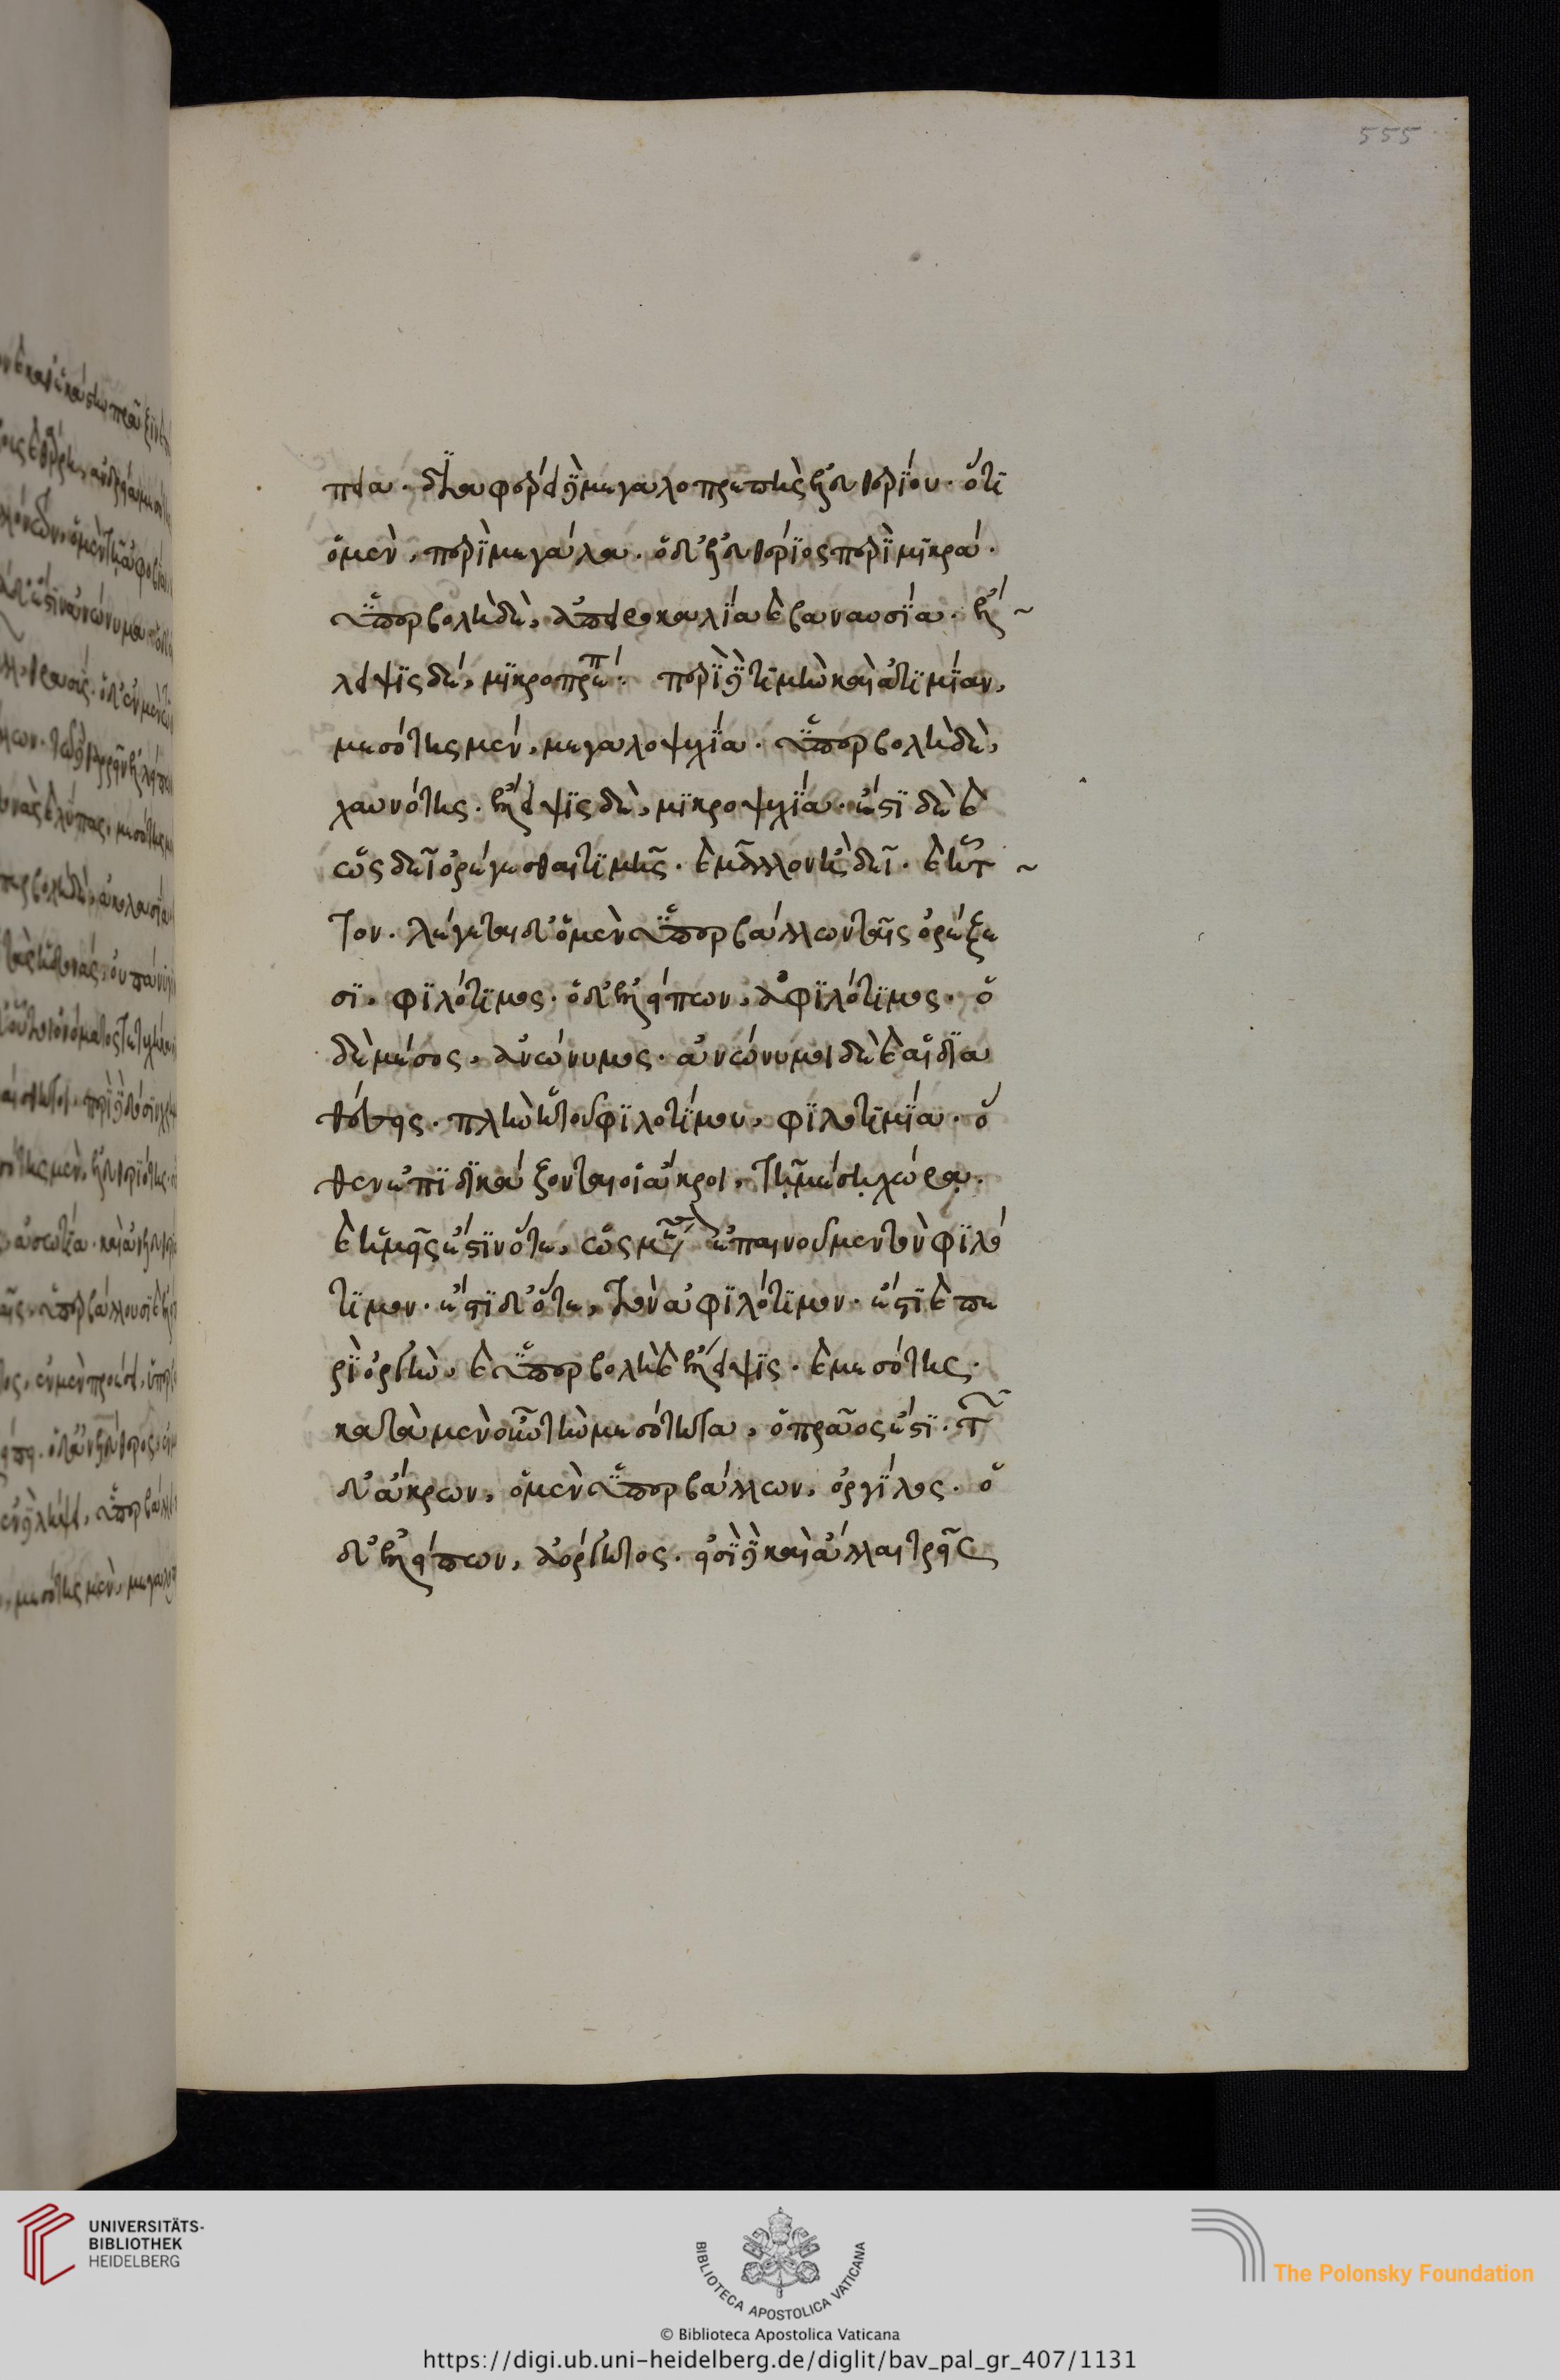 555
πεια. διαφέρει γὰρ μεγαλοπρεπὴς ἐλευθερίου. ὅτι
ὁ μὲν, περὶ μεγάλα. ὁ δ' ἐλευθέριος περὶ μικρά.
ὑπερβολὴ δὲ, ἀπειροκαλία καὶ βαναυσία. ἔλ
λειψις δέ, μικροπρέπ. περὶ γὰρ τιμὴν καὶ ἀτιμίαν,
μεσότης μέν, μεγαλοψυχία. ὑπερβολὴ δὲ,
χαυνότης. ἔλλειψις δὲ, μικροψυχία. ἔστι δὲ καὶ
ὡς δεῖ ὀρέγεσθαι τιμῆς. καὶ μᾶλλον ἢ δεῖ. καὶ ἧτ
τον. λέγεται δ' ὁ μὲν ὑπερβάλλων ταῖς ὀρέξε
σι, φιλότιμος. ὁ δ' ἐλλείπων, ἀφιλότιμος. ὁ
δὲ μέσος, ἀνώνυμος. ἀνώνυμοι δὲ καὶ αἱ δια
θέσεις. πλὴν ἡ τοῦ φιλοτίμου, φιλοτιμία. ὅ
θεν ἐπιδικάζονται οἱ ἄκροι, τῇ μέσῃ χώρᾳ.
καὶ ἡμεῖς ἔστιν ὅτε, ὡς ἐπαινοῦμεν τὸν φιλό
τιμον. ἔστι δ' ὅτε, τὸν ἀφιλότιμον. ἔστι καὶ πε
ρὶ ὀργὴν, καὶ ὑπερβολὴ καὶ ἔλλειψις. καὶ μεσότης.
κατὰ μὲν οὖν τὴν μεσότητα, ὁ πρᾶός ἐστι. τῶν
δ' ἄκρων, ὁ μὲν ὑπερβάλλων, ὀργίλος. ὁ
δ' ἐλλείπων, ἀόργητος. εἰσὶ γὰρ καὶ ἄλλαι τρεῖς
UNIVERSITÄTS-
BIBLIOTHEK
HEIDELBERG
BIBLIOTECA APOSTOLICA VATICANA
The Polonsky Foundation
© Biblioteca Apostolica Vaticana
https://digi.ub.uni-heidelberg.de/diglit/bav_pal_gr_407/1131